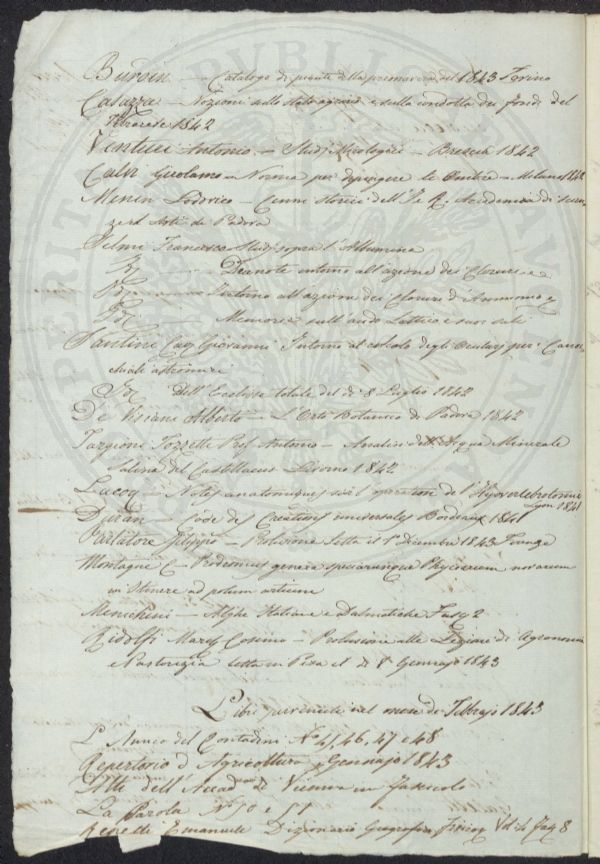 Burdin — Catalogo di piante della primavera del 1843 Torino
Casazza — Nozioni sullo stato agrario e sulla condotta dei fondi del
Ferrarese 1842
Venturi Antonio — Studj Micologici — Brescia 1842
Calvi Girolamo — Norma per dipingere le Ombre — Milano 1842
Menin Lodovico — Cenni storici dell'I. e R. Accademia di scien
ze ed Arti di Padova
Selmi Francesco Studj sopra l'Albumina
Id — intorno all'azione dei Cloruri e
Id — Intorno all'azione dei Cloruri d'Ammonio e
Id — Memoria sull'acido Lattico e suoi sali
Santini Cav Giovanni Intorno al calcolo degli Oculari per i Canoc
chiali astronomici
Id Dell'Ecclisse totale del dì 8 Luglio 1842
De Visiani Alberto — L'Orto Botanico di Padova 1842
Targioni Tozzetti Prof Antonio — Analisi dell'Acqua Minerale
Salina del Livorno 1842
Lecoq — Notes anatomiques sur l'operation de l'Hyovertebrotomie
Lyon 1841
Duran — Code des Creations universelles Bordeaux 1841
Parlatore Filippo — Prolusione letta il 1° Dicembre 1843 Firenze
Montagne C — Prodromus genera specierumque Phycearum novarum
in itinere ad polum
Meneghini — Alghe Italiane e Dalmatiche Fasc 2
Ridolfi March Cosimo — Prolusione alle Lezione di Agronomia
e Pastorizia letta in Pisa il dì Gennajo 1843
Libri pervenuti nel mese di Febbrajo 1843
L'Amico del Contadino N° 45, 46, 47 e 48
Repertorio d'Agricoltura Gennajo 1843
Atti dell'Accad di Vienna un fascicolo
La Parola N° 50 e 51
Repetti Emanuele Dizionario Geografico, fisico Vol